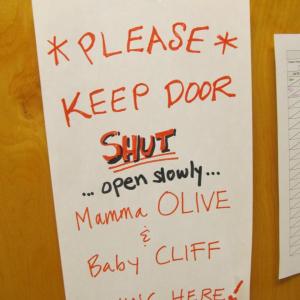 *PLEASE*
KEEP DOOR
SHUT
...open slowly...
Mamma OLIVE
&
Baby CLIFF
HERE!